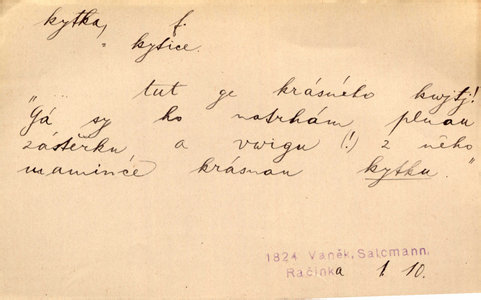 kytka, f.
" kytice.
tut ge krásného kwjtj!
"Gá sy ho natrhám plnau
zástěrku a vwigu (!) z něho
mamince krásnau kytku."
1824 Vaněk, Salcmann,
Račinka 1 10.